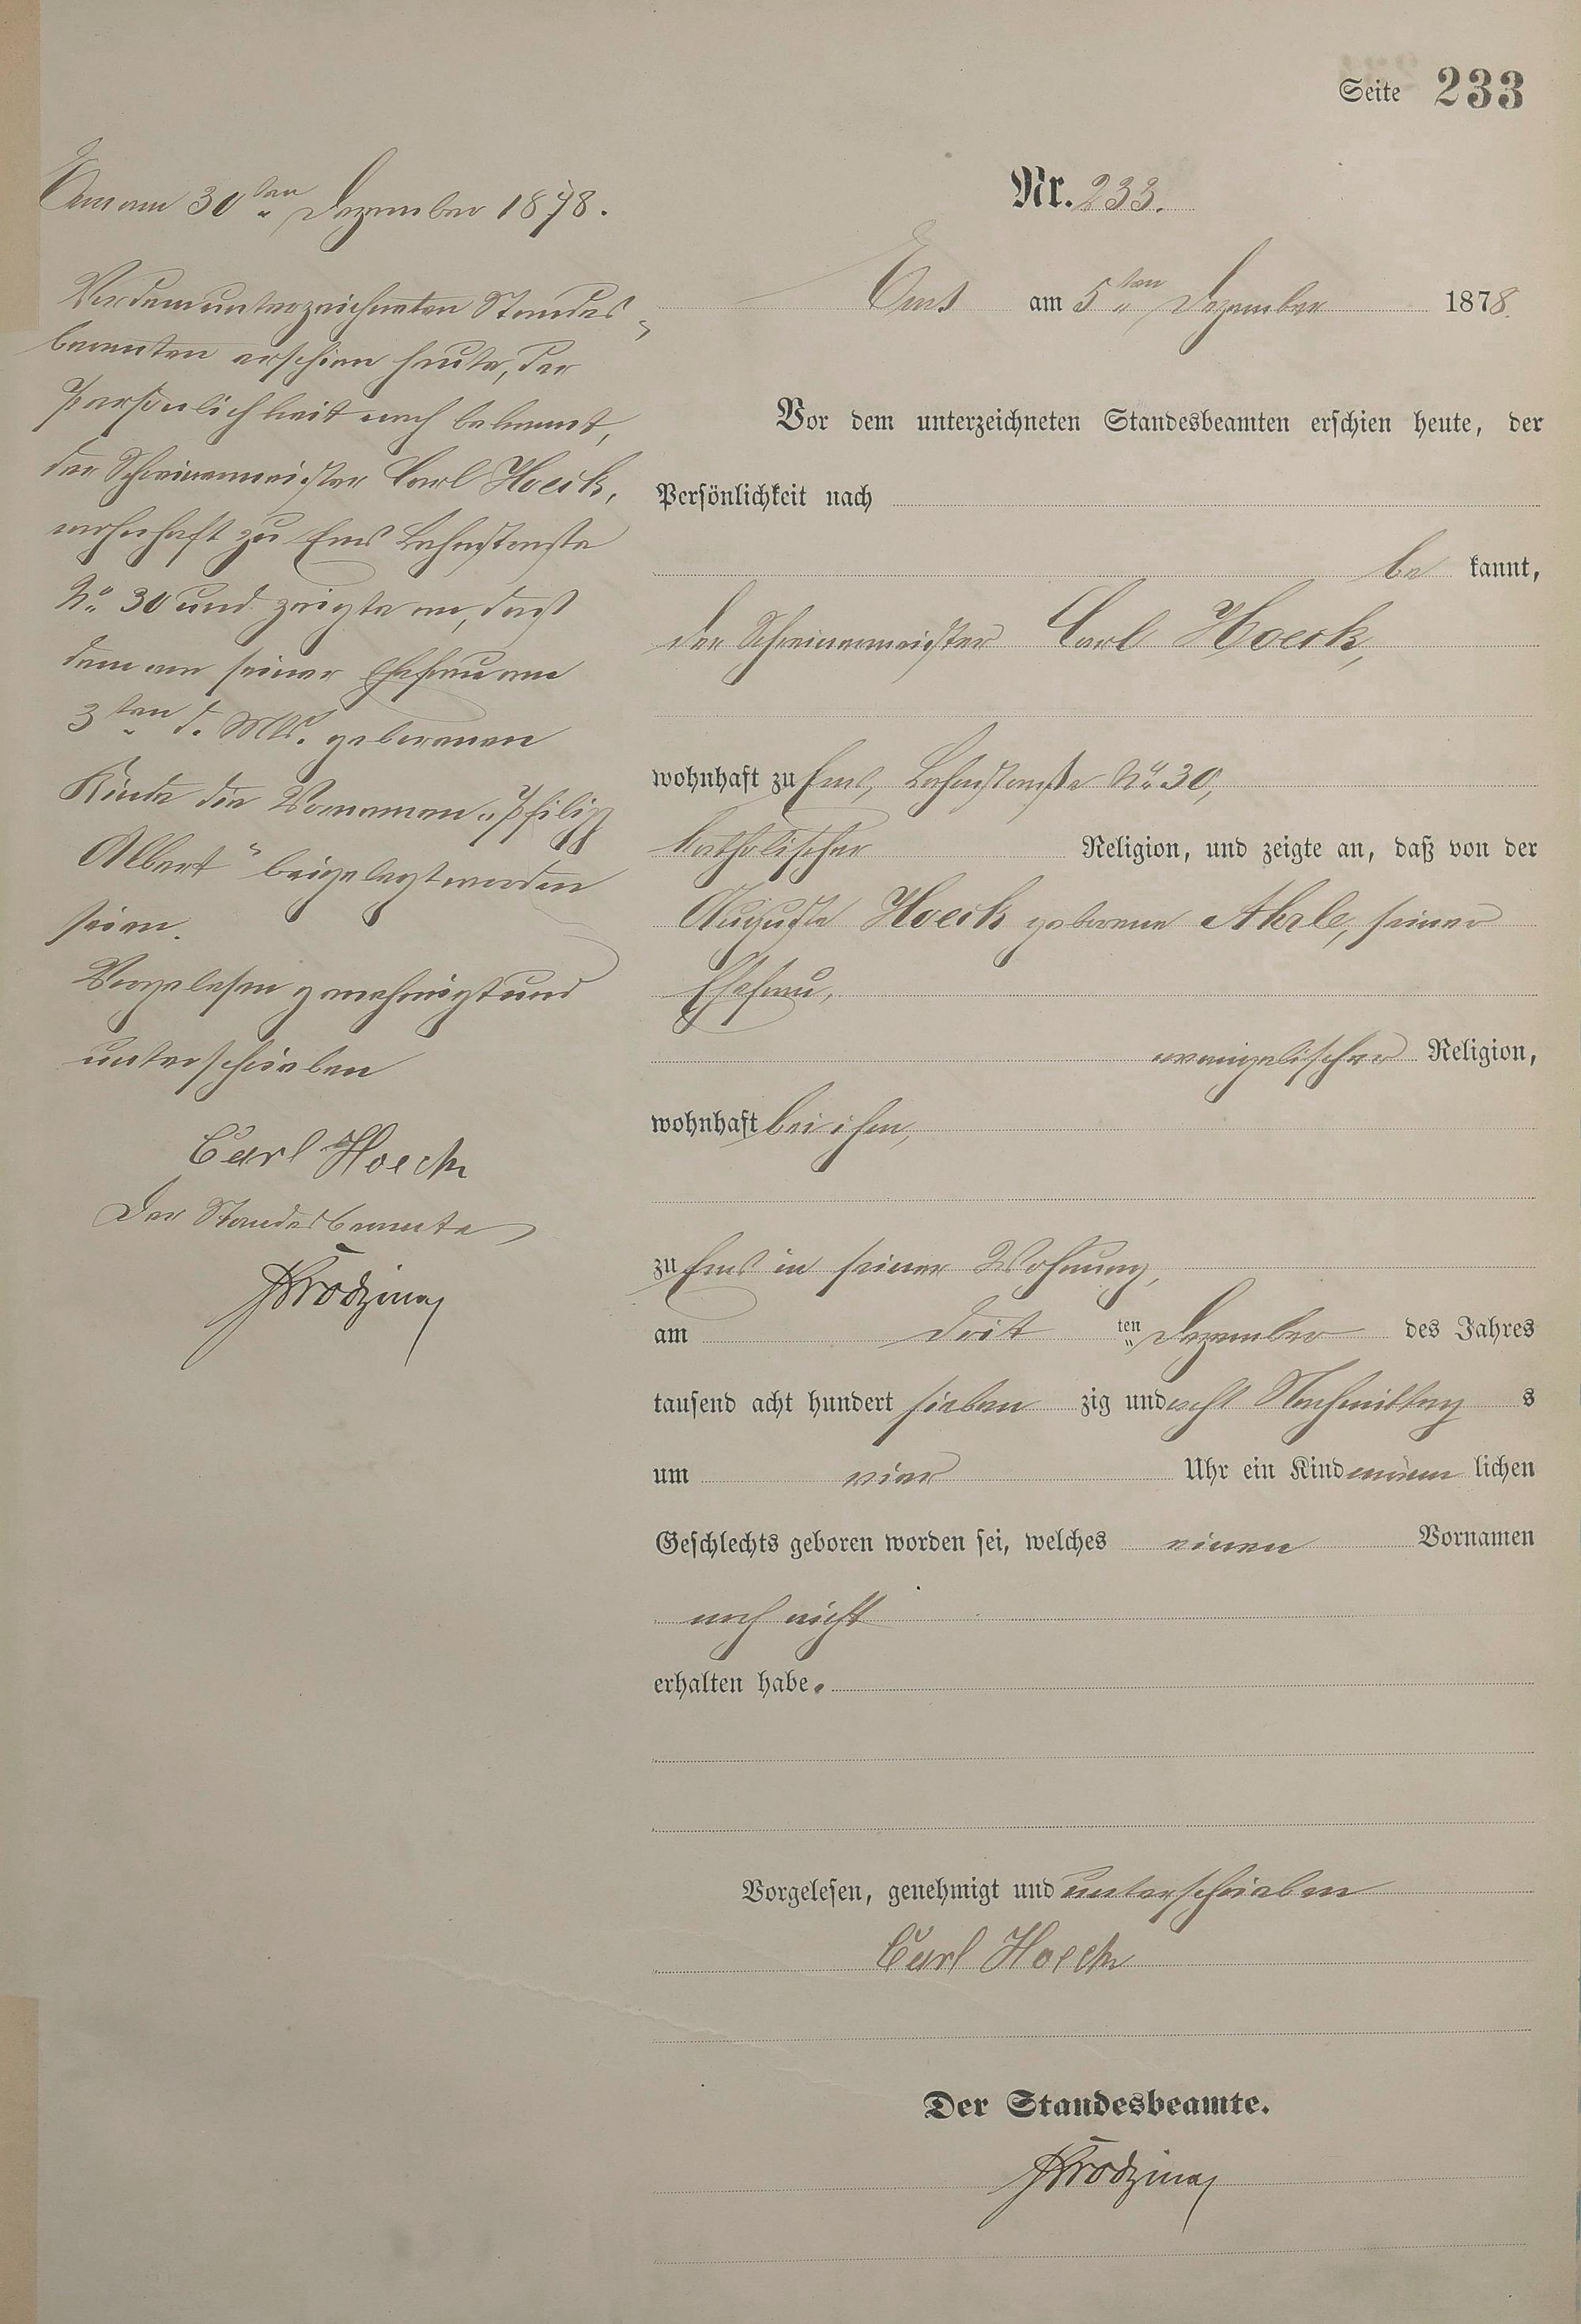 Seite 233
Ems am 30ten Dezember 1878.
Vor dem unterzeichneten Standes-
beamten erschien heute, der
Persönlichkeit nach bekannt,
der Schreinermeister Carl Hoeck,
wohnhaft zu Ems Lahnstraße
No. 30 und zeigte an, daß
dem von seiner Ehefrau am
3ten d. Mts. geborenen
Kinde die Vornamen „Philipp
Albert“ beigelegt worden
seien.
Vorgelesen genehmigt und
unterschrieben
Carl Hoeck
Der Standesbeamte
Nr. 233.
Ems am 5ten Dezember 1878.
Vor dem unterzeichneten Standesbeamten erschien heute, der
Persönlichkeit nach
be kannt,
der Schreinermeister Carl Hoeck,
wohnhaft zu Ems, Lahnstraße No. 30,
katholischer Religion, und zeigte an, daß von der
Auguste Hoeck geborene Ahrle, seiner
Ehefrau,
evangelischer Religion,
wohnhaft bei ihm,
zu Ems in seiner Wohnung,
am drit ten Dezember des Jahres
tausend acht hundert sieben zig und acht Nachmittag s
um vier Uhr ein Kind männ lichen
Geschlechts geboren worden sei, welches einen Vornamen
noch nicht
erhalten habe.
Vorgelesen, genehmigt und unterschrieben
Carl Hoeck
Der Standesbeamte.